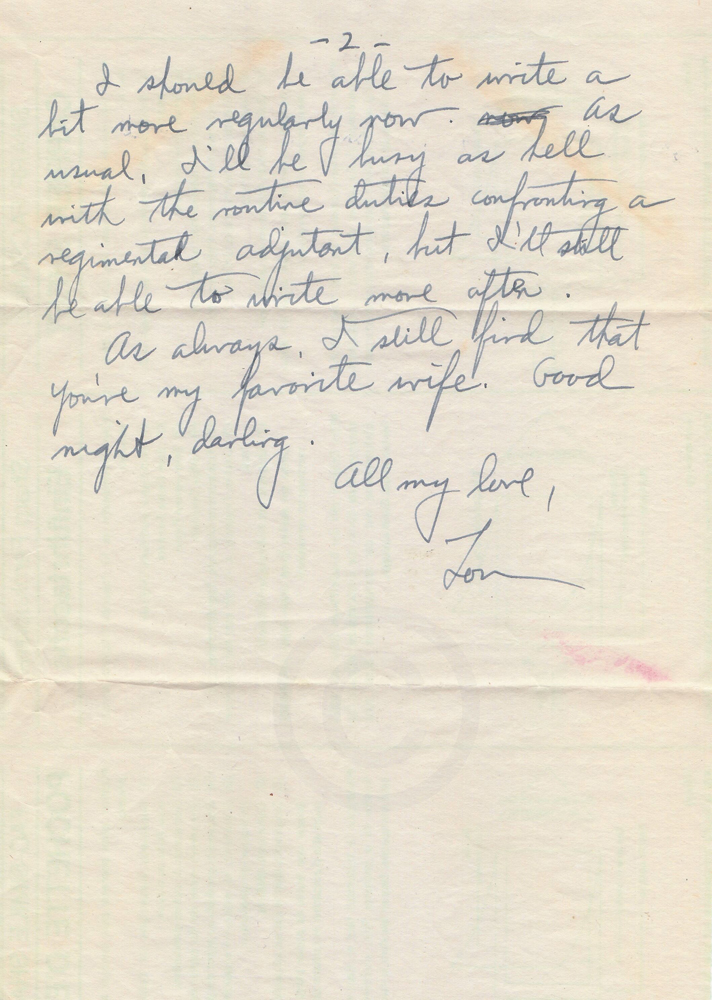 - 2 -
I should be able to write a
bit more regularly now. As
usual, I'll be busy as hell
with the routine duties confronting a
regimental adjutant, but I'll still
be able to write more often.
As always, I still find that
you're my favorite wife. Good
night, darling.
All my love,
©